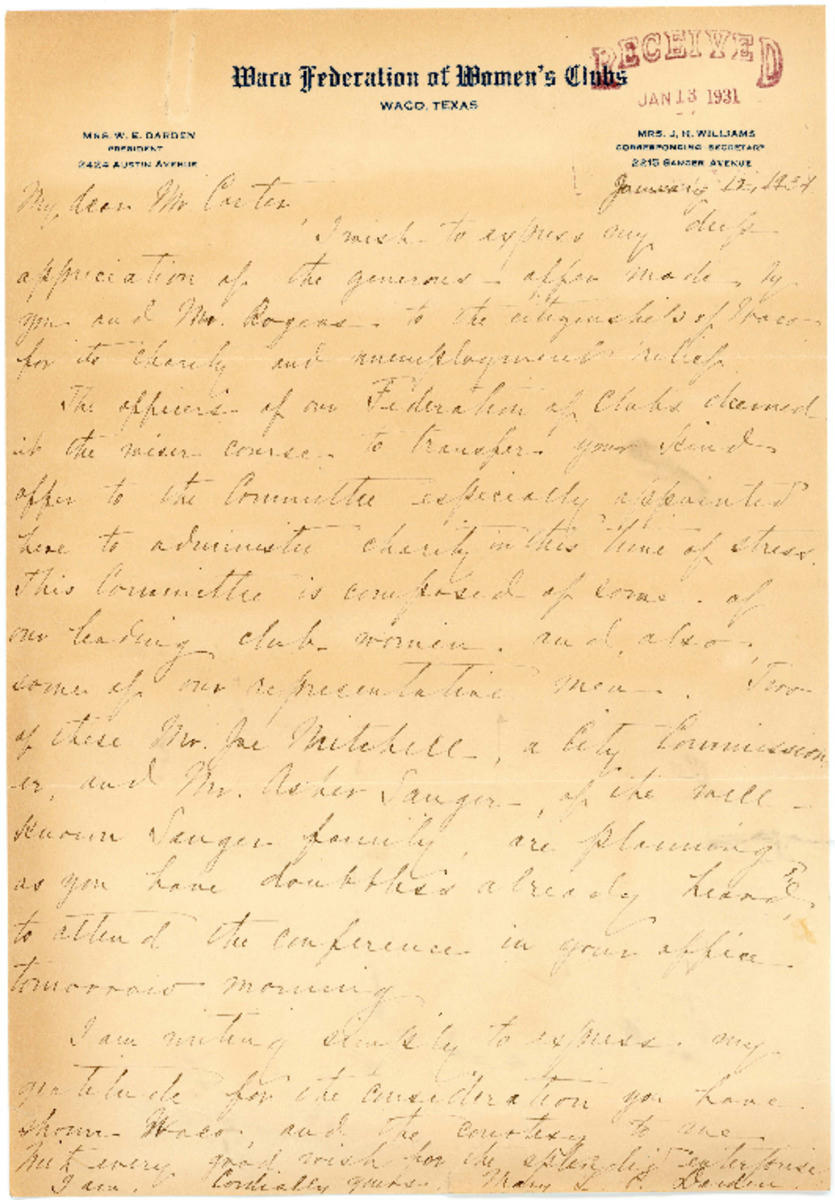 Waco Federation of Women's Clubs
WACO, TEXAS
RECEIVED
JAN 13 1931
MRS. W. E. DARDEN
PRESIDENT
2424 AUSTIN AVENUE
MRS. J. H. WILLIAMS
CORRESPONDING SECRETARY
2215 SANGER AVENUE
January 12,
My dear Mr Carter
I wish to express my deep
appriciation of the generous offer made by
you and Mr. Rogers to the citizenship of Waco
for its charity and unemployment relief
The officers of our Federation of Clubs deemed
it the wiser course to transfer your kind
offer to the Committee especially appointed
here to administer charity in this time of stress.
This Committee is composed of some of
our leading club women and, also,
some of our representative men. Two
of these Mr. Joe Mitchell, a City Commission
er, and Mr. Asher Sanger, of the well
known Sanger family, are planning
as you have doubtless already heard,
to attend the conference in your office
tomorrow morning
I am writing simply to express my
gratitude for the consideration you have
shown Waco and the courtesy to me
With every good wish for the splendid enterprise
I am, Cordially yours, Mary L. P. Darden